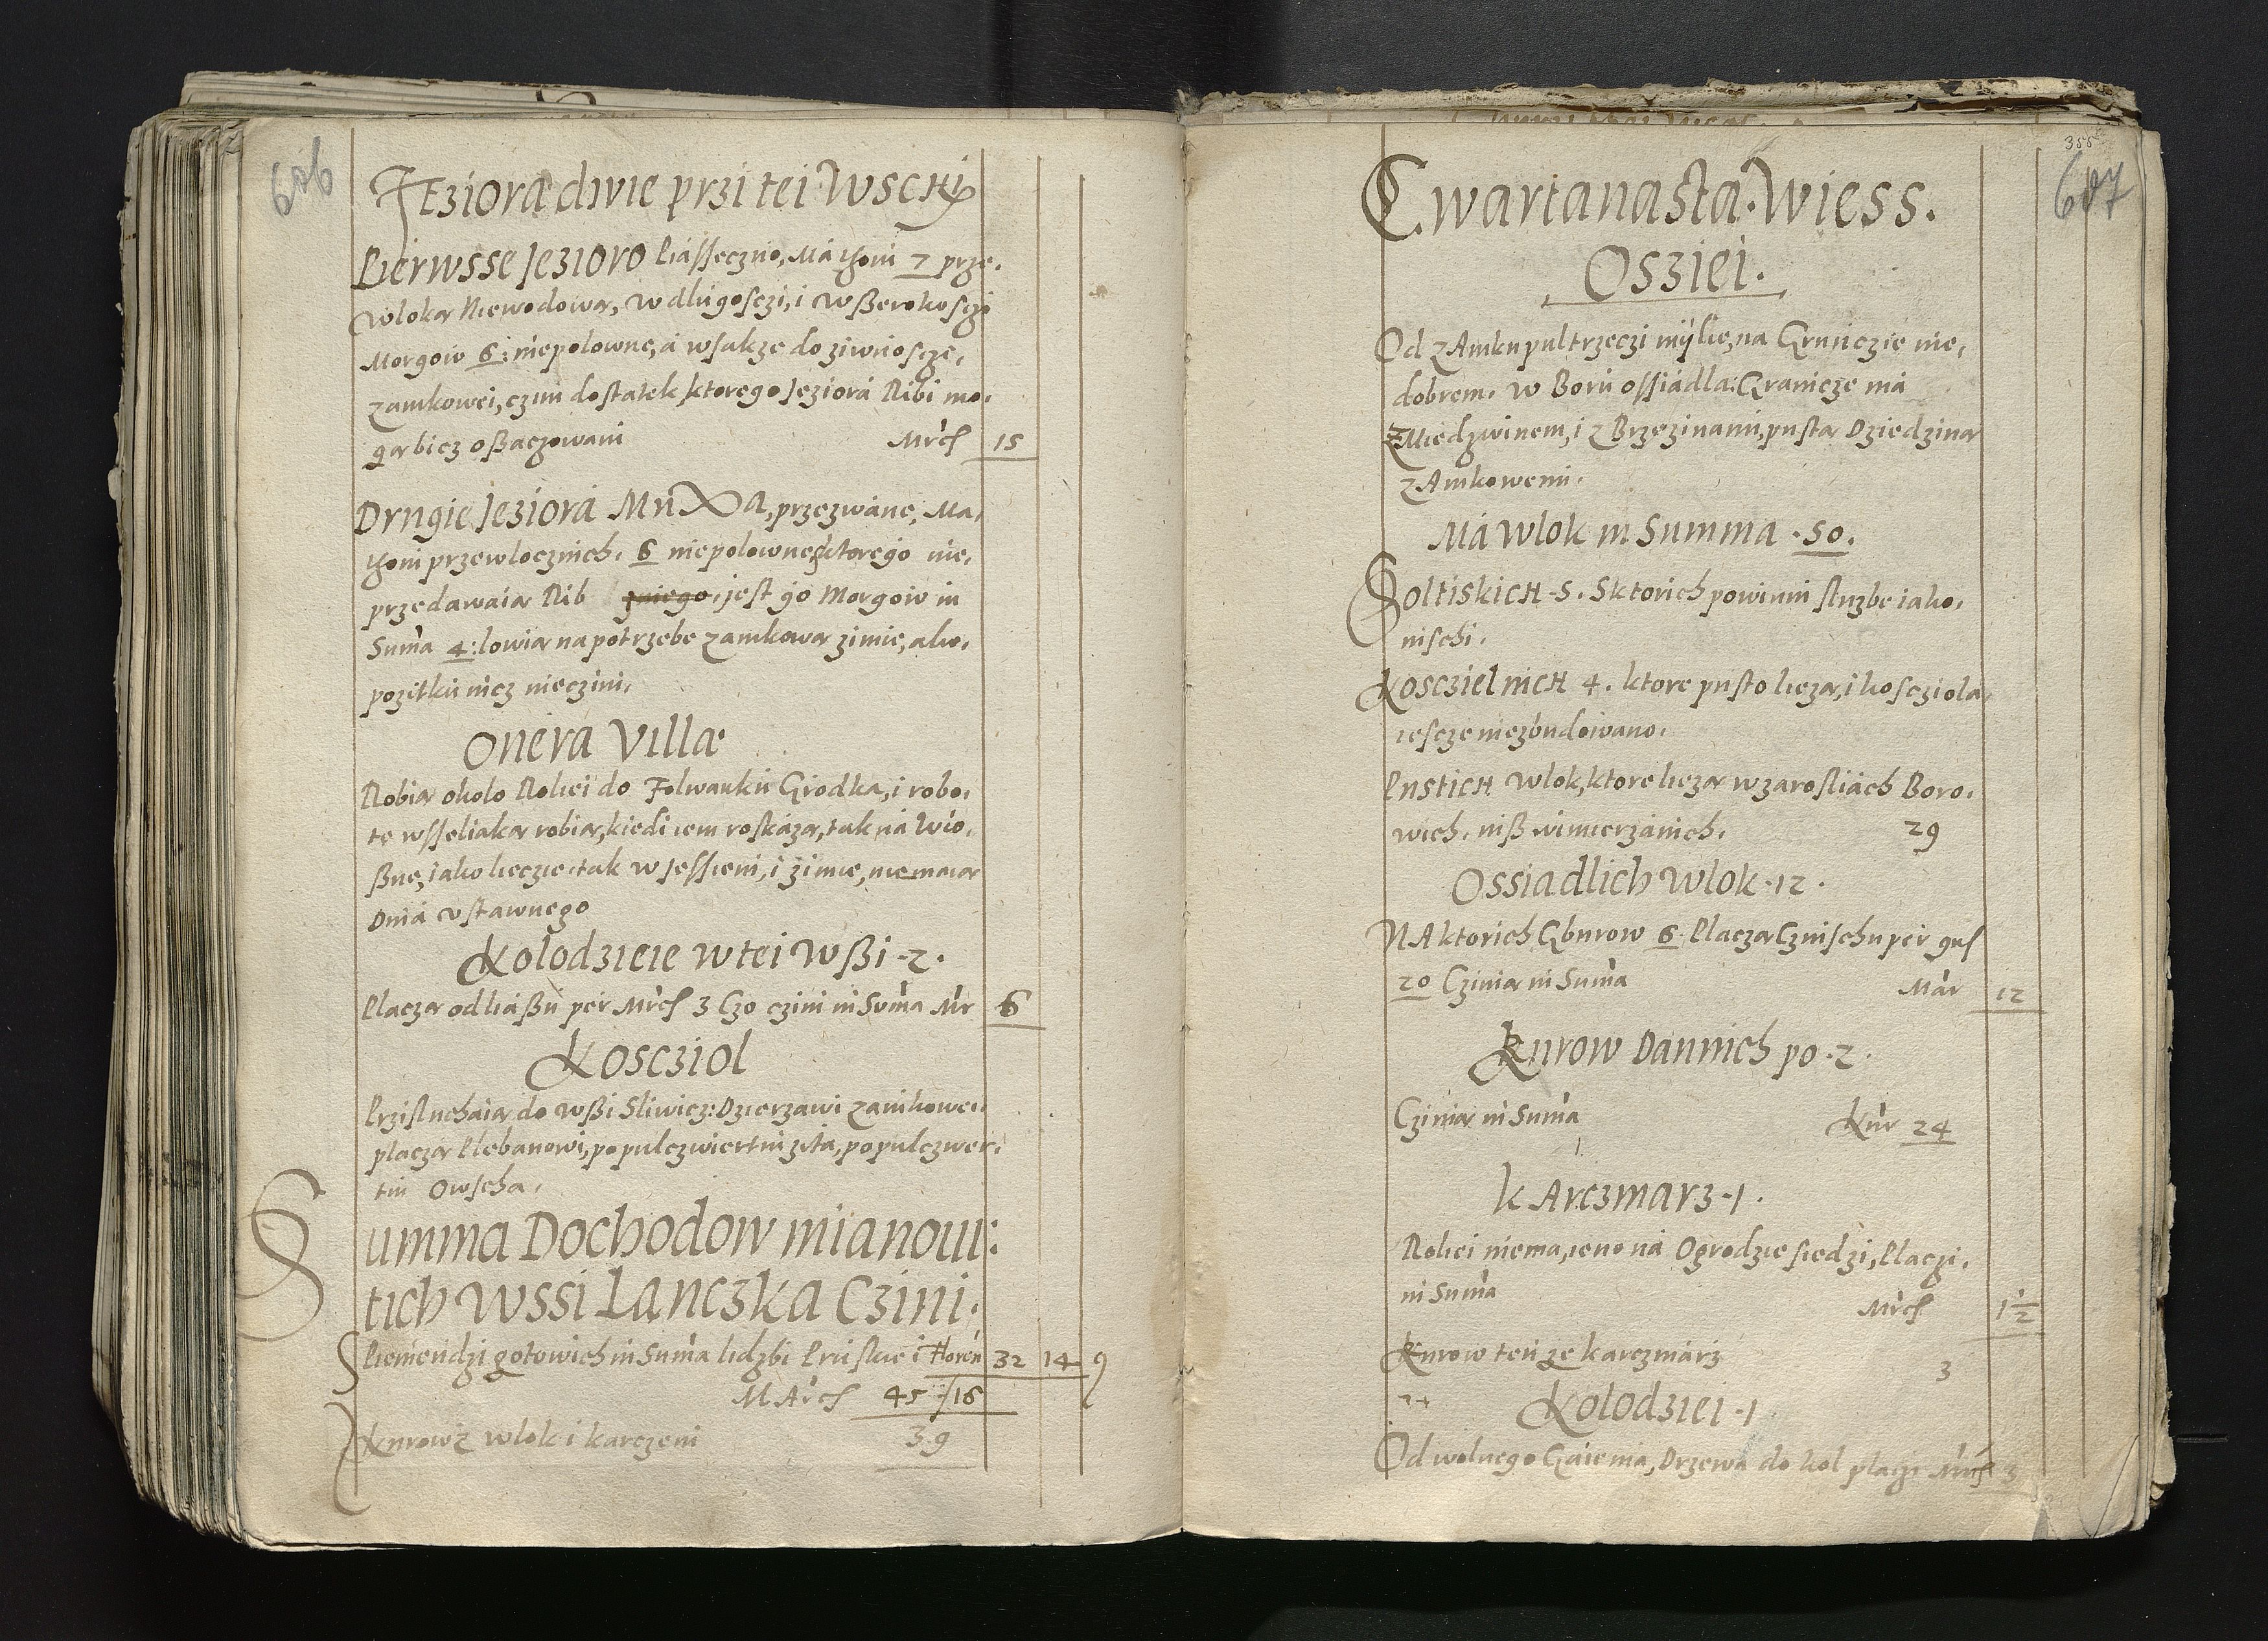 606
Jeziora dwie przi tei Wschi
Pierwsse Jezioro Piasseczno, Ma thoni 7 prze,
wloka Niewodowa, w dlugosczi, i w sserokosczi
Morgow 6: niepolowne, a wsakze do ziwnoscze,
zamkowei, czim dostatek, ktorego Jeziora Ribi mo,
ga bicz oßaczowani Mrcs 15
Drugie Jeziora Muxa, przezwane, Ma,
thoni przewlocznich, 6 niepolowne, ktorego nie,
przedawaia Rib jest go Morgow in
Suma 4: lowia na potrzebe zamkowa zimie, ale,
pozitku nicz nieczini,
Onera Villæ
Robia okolo Roliei do Folwarku Grodka, i robo,
te wsseliaka robia, kiedi iem roskaza, tak na Wio,
ßne, iako lieczie tak w Jessieni, i zimie, niemaia
Dnia vstawnego
Kolodzieie w tei Wßi .2.
Placza od liaßu per Mrcs 3 Czo czini in Suma Mr 6
Koscziol
Przisluchaia do wßi Sliwicz: Dzierzawi zamkowei
placza Plebanowi, po pulczwiertni zita, po pulczwer,
tni Owscha,
Summa Dochodow mianowi:
tich Wssi Lanczka Czini.
Pieniendzi gotowich in Suma lidzbi Pruskie i Floren 32 14 9
MArcs 45 /16
Kurow z wlok i karczmi 39
355
607
Czwartanasta. Wiess.
Osziei.
Od zAmku pultrzeczi mylie, na Grunczie nie,
dobrem, w Boru ossiadla: Granicze ma
z Miedzwinem, i z Brzezinami, pusta Dziedzina
zAmkowemi.
Ma Wlok in Summa .50.
Soltiskich .5. S ktorich powinni sluzbe iako,
nischi.
Kosczielnich 4. ktore pusto lieza, i kosciola,
iescze niezbudowano.
Pustich Wlok, ktore lieza w zarosliach Boro,
wich, niß wimierzanich, 29
Ossiadlich Wlok .12.
NA ktorich Gburow 6 Placza Czinschu per gus
20 Czinia in Suma Mar 12
Kurow Dannich po .2.
Czinia in Suma Kur 24
kArczmarz .1.
Roliei niema, ieno na Ogrodzie siedzi, Placzi,
in Suma Mrcs 1 1/2
Kurow ten ze karczmarz 3
Kolodziei .1
Od wolnego Gaienia, Drzewa do kol placzi Mrcs 3